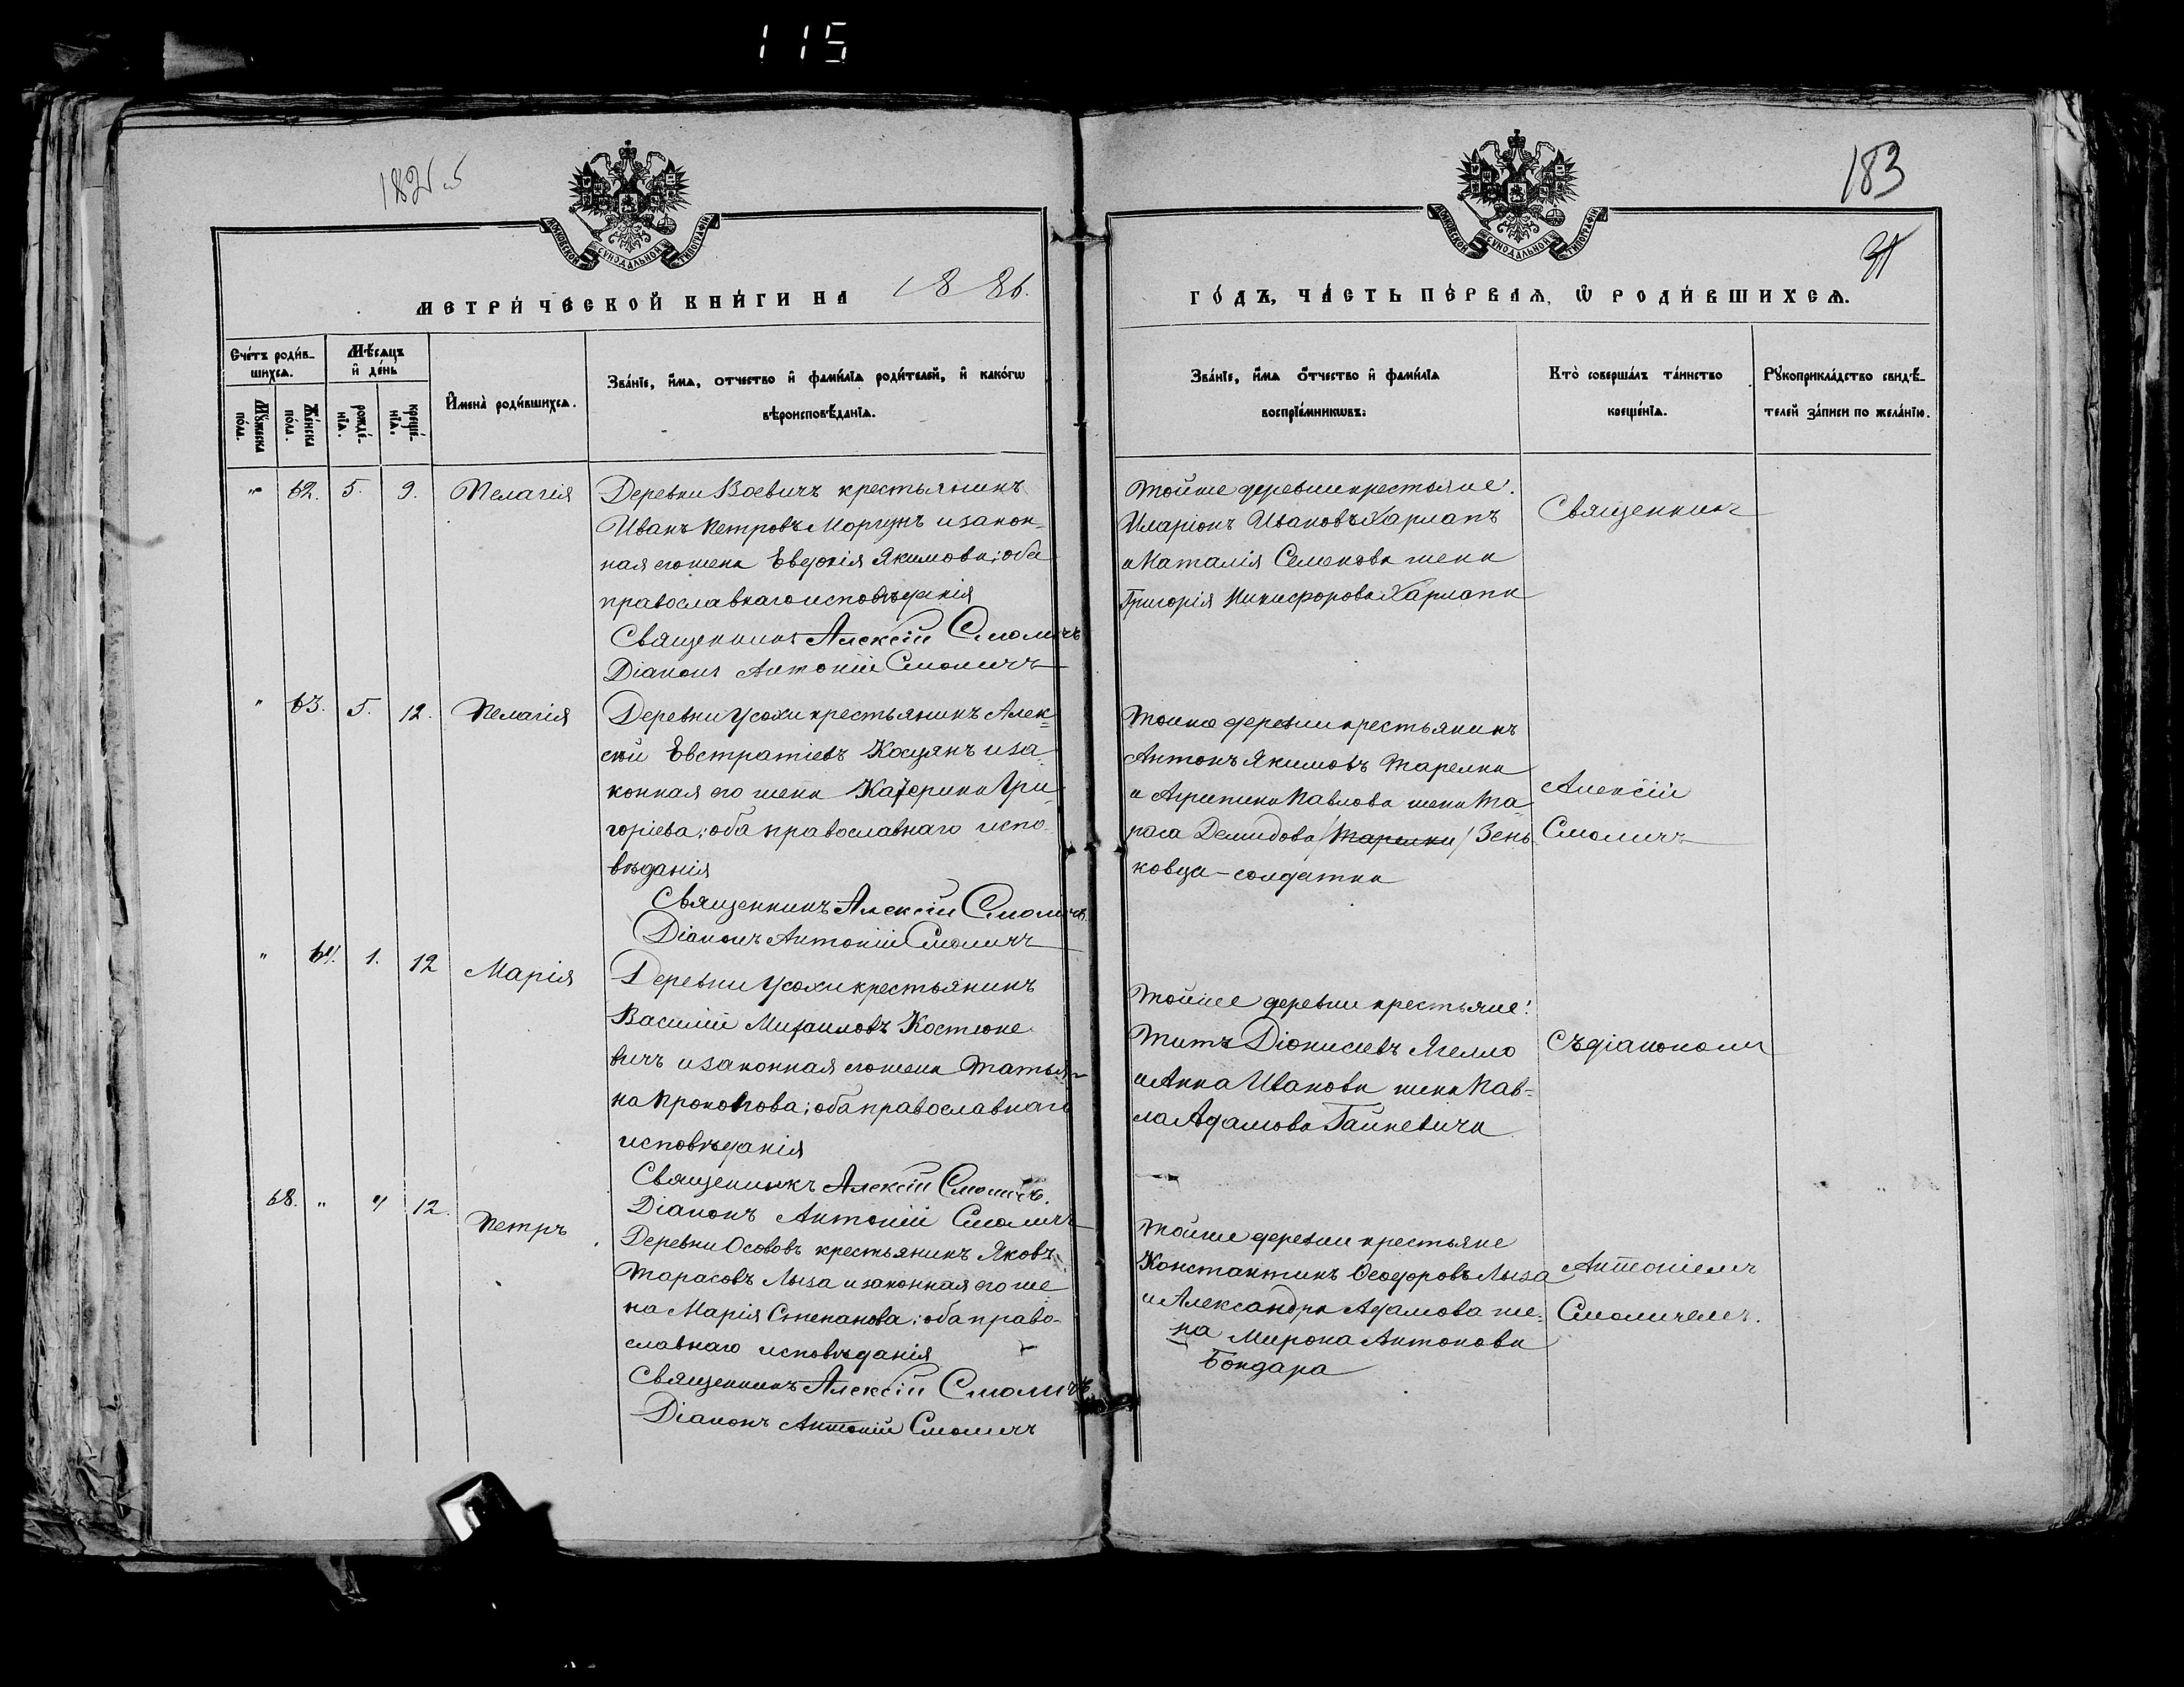 115
183
МОСКОВСКОЙ СѴНОДАЛЬНОЙ ТИПОГРАФІИ
МОСКОВСКОЙ СѴНОДАЛЬНОЙ ТИПОГРАФІИ
МЕТРИ́ЧЕСКОЙ КНИ́ГИ НА 1886.
ГО́ДЪ, ЧА́СТЬ ПЕ́РВАѦ, Ѿ РОДИ́ВШИХСѦ.
Сче́тъ роди́в-
шихсѧ.
Мꙋ́жеска
по́ла.
Же́нска
по́ла.
Мѣ́сѧцъ
и҆ де́нь
рожде́-
нїѧ.
креще́-
нїѧ.
И҆мена̀ роди́вшихсѧ.
Зва́нїе, и҆́мѧ, ѻ҆́тчество и҆ фами́лїѧ роди́телей, и҆ како́гѡ
вѣроисповѣ́данїѧ.
Зва́нїе, и҆́мѧ ѻ҆́тчество и҆ фами́лїѧ
воспрїе́мникѡвъ.
Кто̀ соверша́лъ та́инство
креще́нїѧ.
Рꙋкоприкла́дство свидѣ́-
телей за́писи по жела́нїю.
" 62. 5. 9. Пелагія
Деревни Воевичъ крестьянинъ
Иванъ Петровъ Моргунъ и закон-
ная его жена Евдокія Якимова; оба
православнаго исповѣданія
Священникъ Алексій Смоличъ
Діаконъ Антоній Смоличъ
Тойже деревни крестьяне:
Иларіонъ Ивановъ Харлапъ
и Наталія Семенова жена
Григорія Никифорова Харлапа
Священникъ
" 63. 5. 12. Пелагія
Деревни Усохи крестьянинъ Алек-
сѣй Евстратіевъ Косцянъ и за-
конная его жена Катерина Гри-
горіева; оба православнаго испо-
вѣданія
Священникъ Алексій Смоличъ
Діаконъ Антоній Смоличъ
Тойже деревни крестьянинъ
Антонъ Якимовъ Тарелка
и Агрипина Павлова жена Та-
раса Демидова /Тарелки/ Зень-
ковца - солдатка
Алексій
Смоличъ
" 64. 1. 12 Марія
Деревни Усохи крестьянинъ
Василій Михаиловъ Костюке-
вичъ и законная его жена Татья-
на Прокопова; оба православнаго
исповѣданія
Священникъ Алексій Смоличъ.
Діаконъ Антоній Смоличъ
Тойже деревни крестьяне:
Титъ Діонисіевъ Ягелло
и Анна Иванова жена Пав-
ла Адамова Гайкевича
Съ діакономъ
68. " 12. Петръ
Деревни Осововъ крестьянинъ Яковъ
Тарасовъ Лыза и законная его же
на Марія Степанова; оба право-
славнаго исповѣданія
Священникъ Алексій Смоличъ
Діаконъ Антоній Смоличъ
Тойже деревни крестьяне
Константинъ Ѳеодоровъ Лыза
и Александра Адамова же-
на Мирона Антонова
Бондара
Антоніемъ
Смоличемъ.